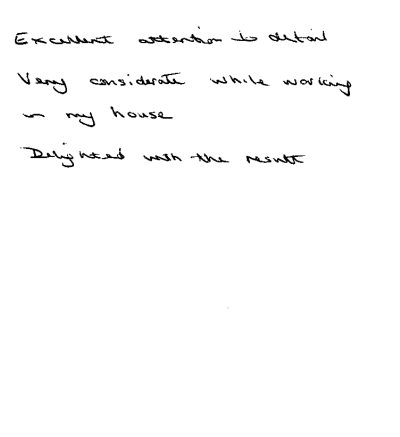 Excellent attention to detail
Very considerate while working
in my house
Delighted with the result